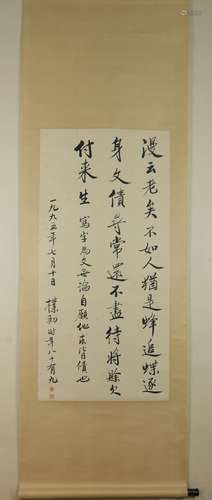 漫云老矣不如人猶是蜂追蝶逐
身文債尋常還不盡待將賒欠
付来生 寫字為文無論自願他求皆債也
一九九五年七月十日 樸初时年八十有九